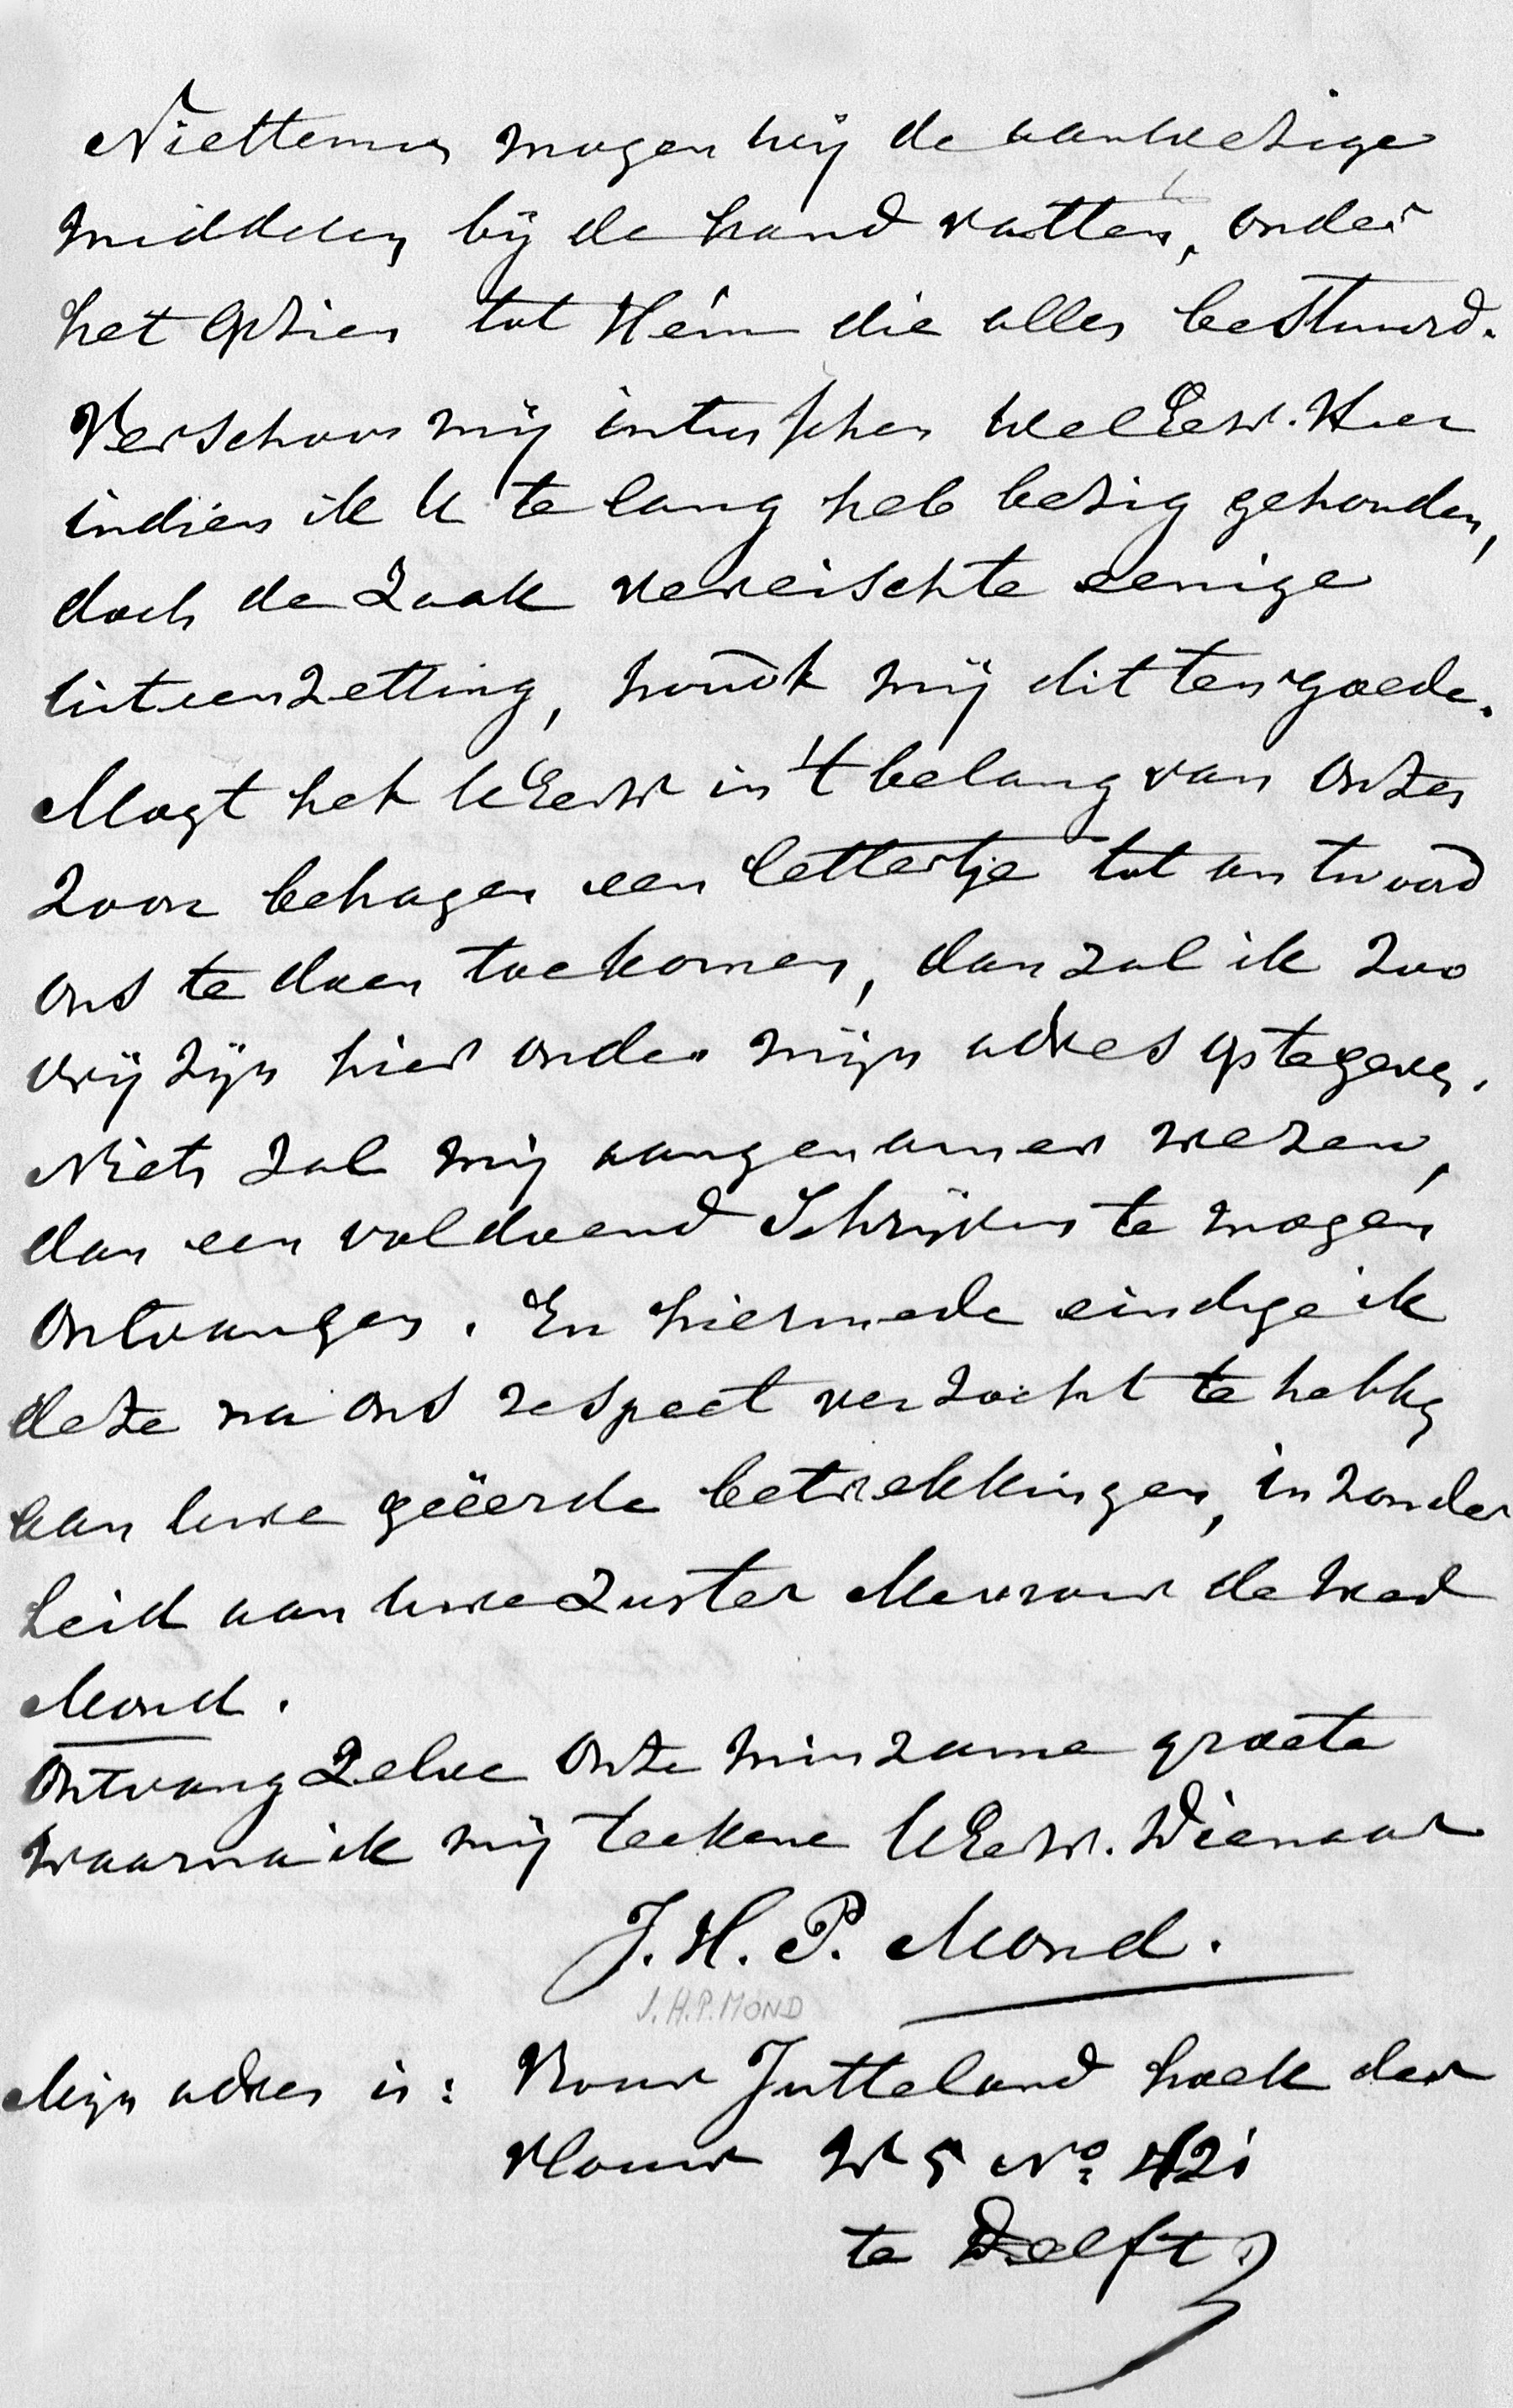 Niettemin mogen wij de aanwezige
middelen bij de hand vatten, onder
het opzien tot Hem die alles bestuurd.
Verschoon mij intusschen WelEerw. Heer
indien ik U te lang heb bezig gehouden,
doch de Zaak vereischte eenige
uiteenzetting, houdt mij dit ten goede.
Mogt het UEerw in 't belang van onzen
Zoon behagen een lettertje tot antwoord
ons te doen toekomen, dan zal ik zoo
vrij zijn hier onder mijn adres op te geven.
Niets zal mij aangenamer wezen,
dan een voldoend Schrijven te mogen
ontvangen. En hiermede eindige ik
deze na ons respect verzocht te hebben
aan uwe geëerde betrekkingen, inzonder
heid aan uwe Zuster Mevrouw de Wed
Mond.
Ontvang Zelve onze minzame groete
waarna ik mij teekene UEerw. Dienaar
J. H. P. Mond.
J.H.P. MOND
Mijn adres is: Jutteland hoek der
W 5 No 421
te Delft